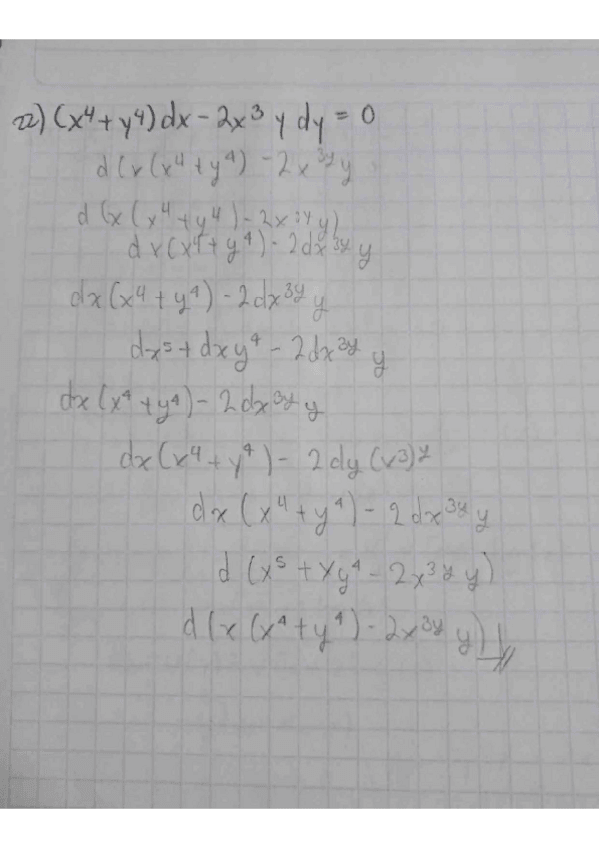 22) (x⁴+y⁴)dx - 2x³ y dy = 0
d(x(x⁴+y⁴) - 2x³ʸy
d(x(x⁴+y⁴) - 2x³ʸy)
dx(x⁴+y⁴) - 2dx³ʸy
dx(x⁴+y⁴) - 2dx³ʸy
dx⁵+dxy⁴ - 2dx³ʸy
dx(x⁴+y⁴) - 2dx³ʸy
dx(x⁴+y⁴) - 2dy(x3)ʸ
dx(x⁴+y⁴) - 2dx³ʸy
d(x⁵+xy⁴ - 2x³ʸy)
d(x(x⁴+y⁴) - 2x³ʸy)